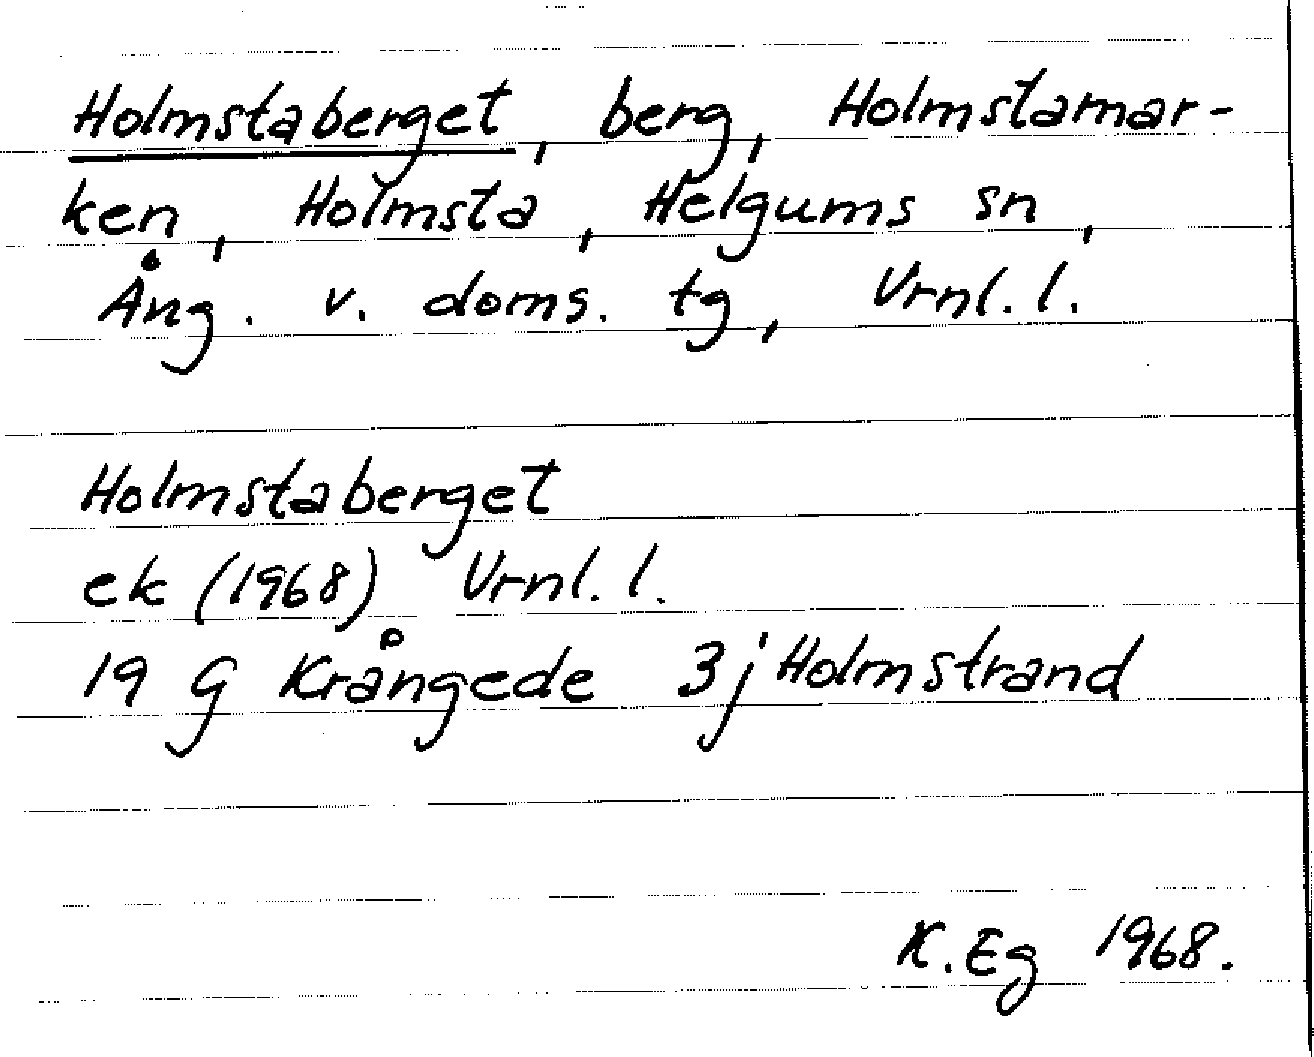 Holmstaberget, berg, Holmstamar-
ken, Holmsta, Helgums sn,
Ång. v. doms. tg, Vrnl. l.
Holmstaberget
ek (1968) Vrnl. l.
19 G Krångede 3j Holmstrand
K. Eg 1968.